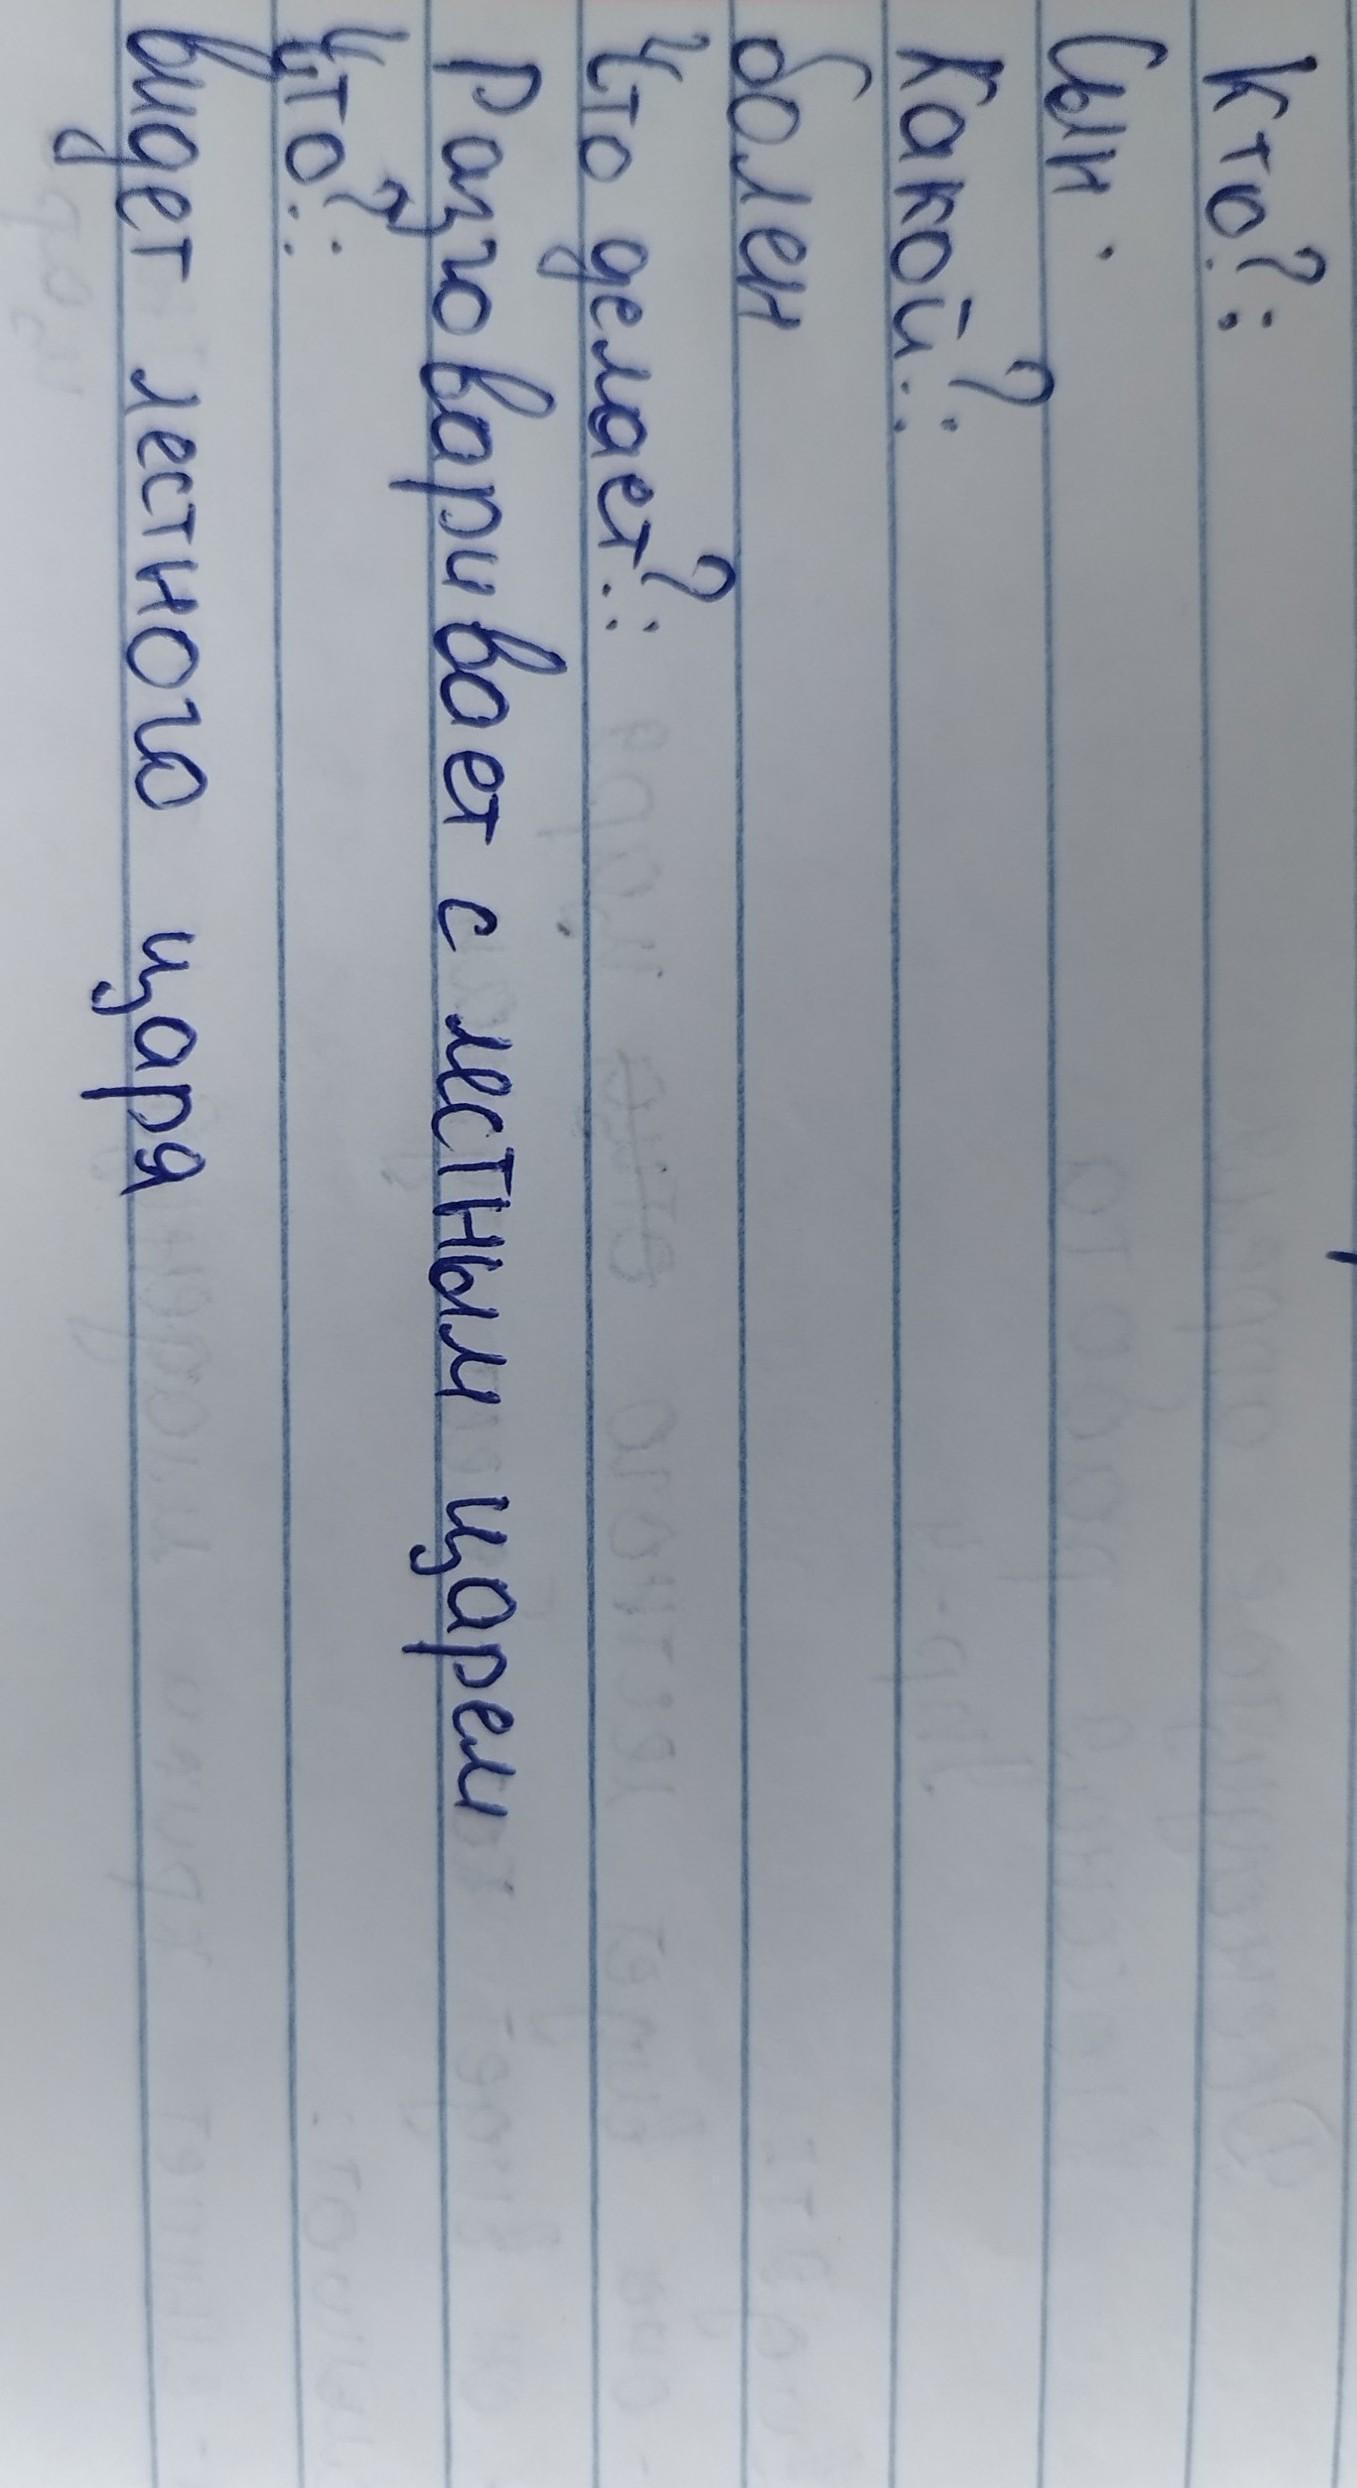 Кто?:
Сын.
Какой?:
болен
Что делает?:
Разговаривает с лестным царем
Что?:
видет лестного царя